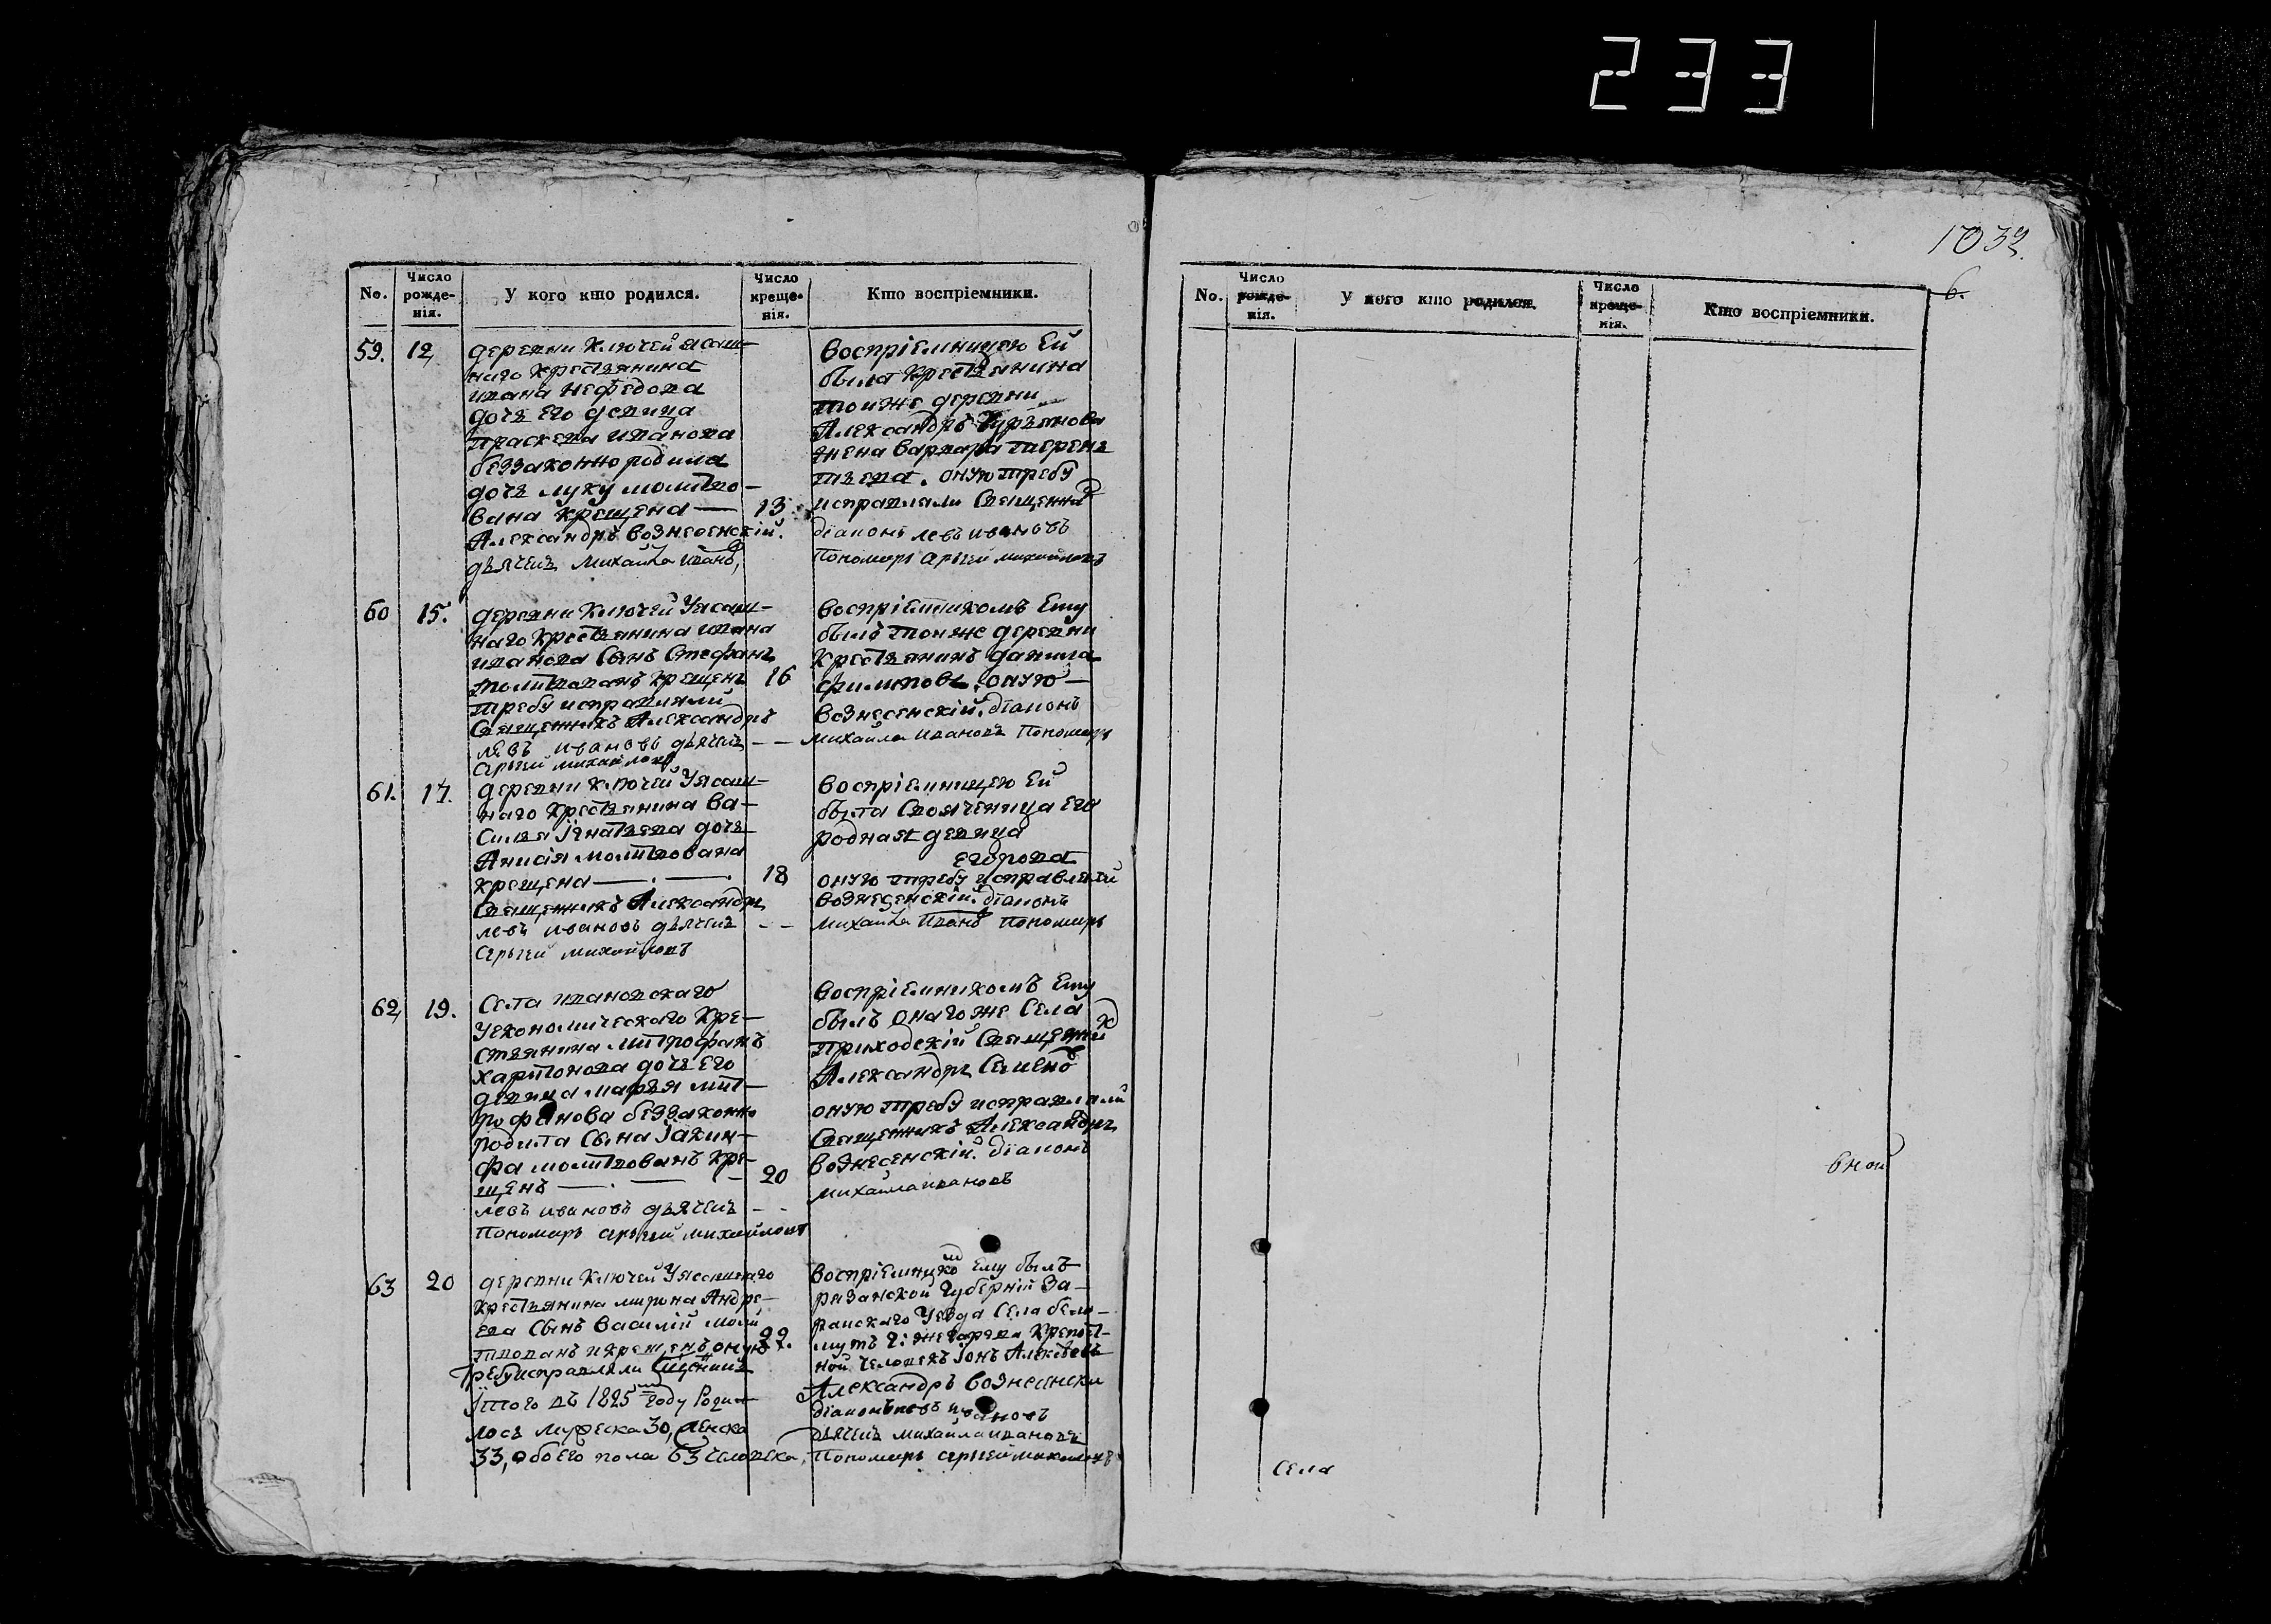 233
1032.
6.
No. Число рожденія. У кого кто родился. Число крещенія. Кто воспріемники.
59. 12
деревни Ключей ясаш-
наго Крестьянина
ивана Нефедова
дочь Его девица
праскева иванова
беззаконно родила
дочь молитво-
вана крещена — 13
Александръ Вознесенскій.
дьячекъ Михайла иванъ,
Воспріемницею Ей
была Крестьянина
тоиже деревни
Александръ
жена варвара терень
тьева. оную требу
исправляли Священник
діаконъ левъ ивановъ
пономарь сергей михайловъ
60 15.
деревни Ключей Уясаш-
наго Крестьянина ивана
иванова Сынъ Стефанъ
молитвованъ крещенъ 16
требу исправляли
Священникъ Александръ
левъ ивановъ дьячекъ — —
сергей михайловъ
Воспріемникомъ Ему
былъ тоиже деревни
Крестьянинъ данила
филиповъ. оную —
вознесенскій. діаконъ
михайла ивановъ пономарь
61. 17.
деревни Ключей Уясаш-
наго Крестьянина Ва-
силья Iгнатьева дочь
Анисія молитвована
крещена — . — . 18
Священникъ Александръ
левъ ивановъ дьячекъ - -
сергей михайловъ
Воспріемницею Ей
была Своячница Его
родная девица
Егорова
оную требу исправляли
вознесенскій. діаконъ
михайла иванъ пономарь
62, 19.
Села ивановскаго
Уекономическаго Кре-
стьянина митрофанъ
харитонова дочь Его
девица марья мит-
рофанова беззаконно
родила Сына Iакин-
фа молитвованъ кре-
щенъ — . — - 20
левъ ивановъ дьячекъ - -
пономарь сергей михайловъ
Воспріемникомъ Ему
былъ онагоже Села
приходскій Священник
Александръ Семено
оную требу исправляли
Священникъ Александръ
вознесенскій. діаконъ
михайла ивановъ
63 20
деревни Ключей Уясашнаго
крестьянина мирона Андре-
ева Сынъ Василій моли
твованъ и крещенъ оную 22.
требу исправляли Сщенникъ
Iтого въ 1825м году Роди-
лось мужеска 30, женска
33, обоего пола 63 человека,
Воспріемником Ему былъ
рязанской Губерніи За-
райскаго Уезда Села бело-
мутъ Г: крепост-
ной человекъ Iонъ Алексеевъ
Александръ вознесенски
діаконъ левъ ивановъ
дьячекъ михайла ивановъ
пономарь сергей михайловъ
No. Число рожденія. У кого кто родился. Число крещенія. Кто воспріемники.
вной
Села